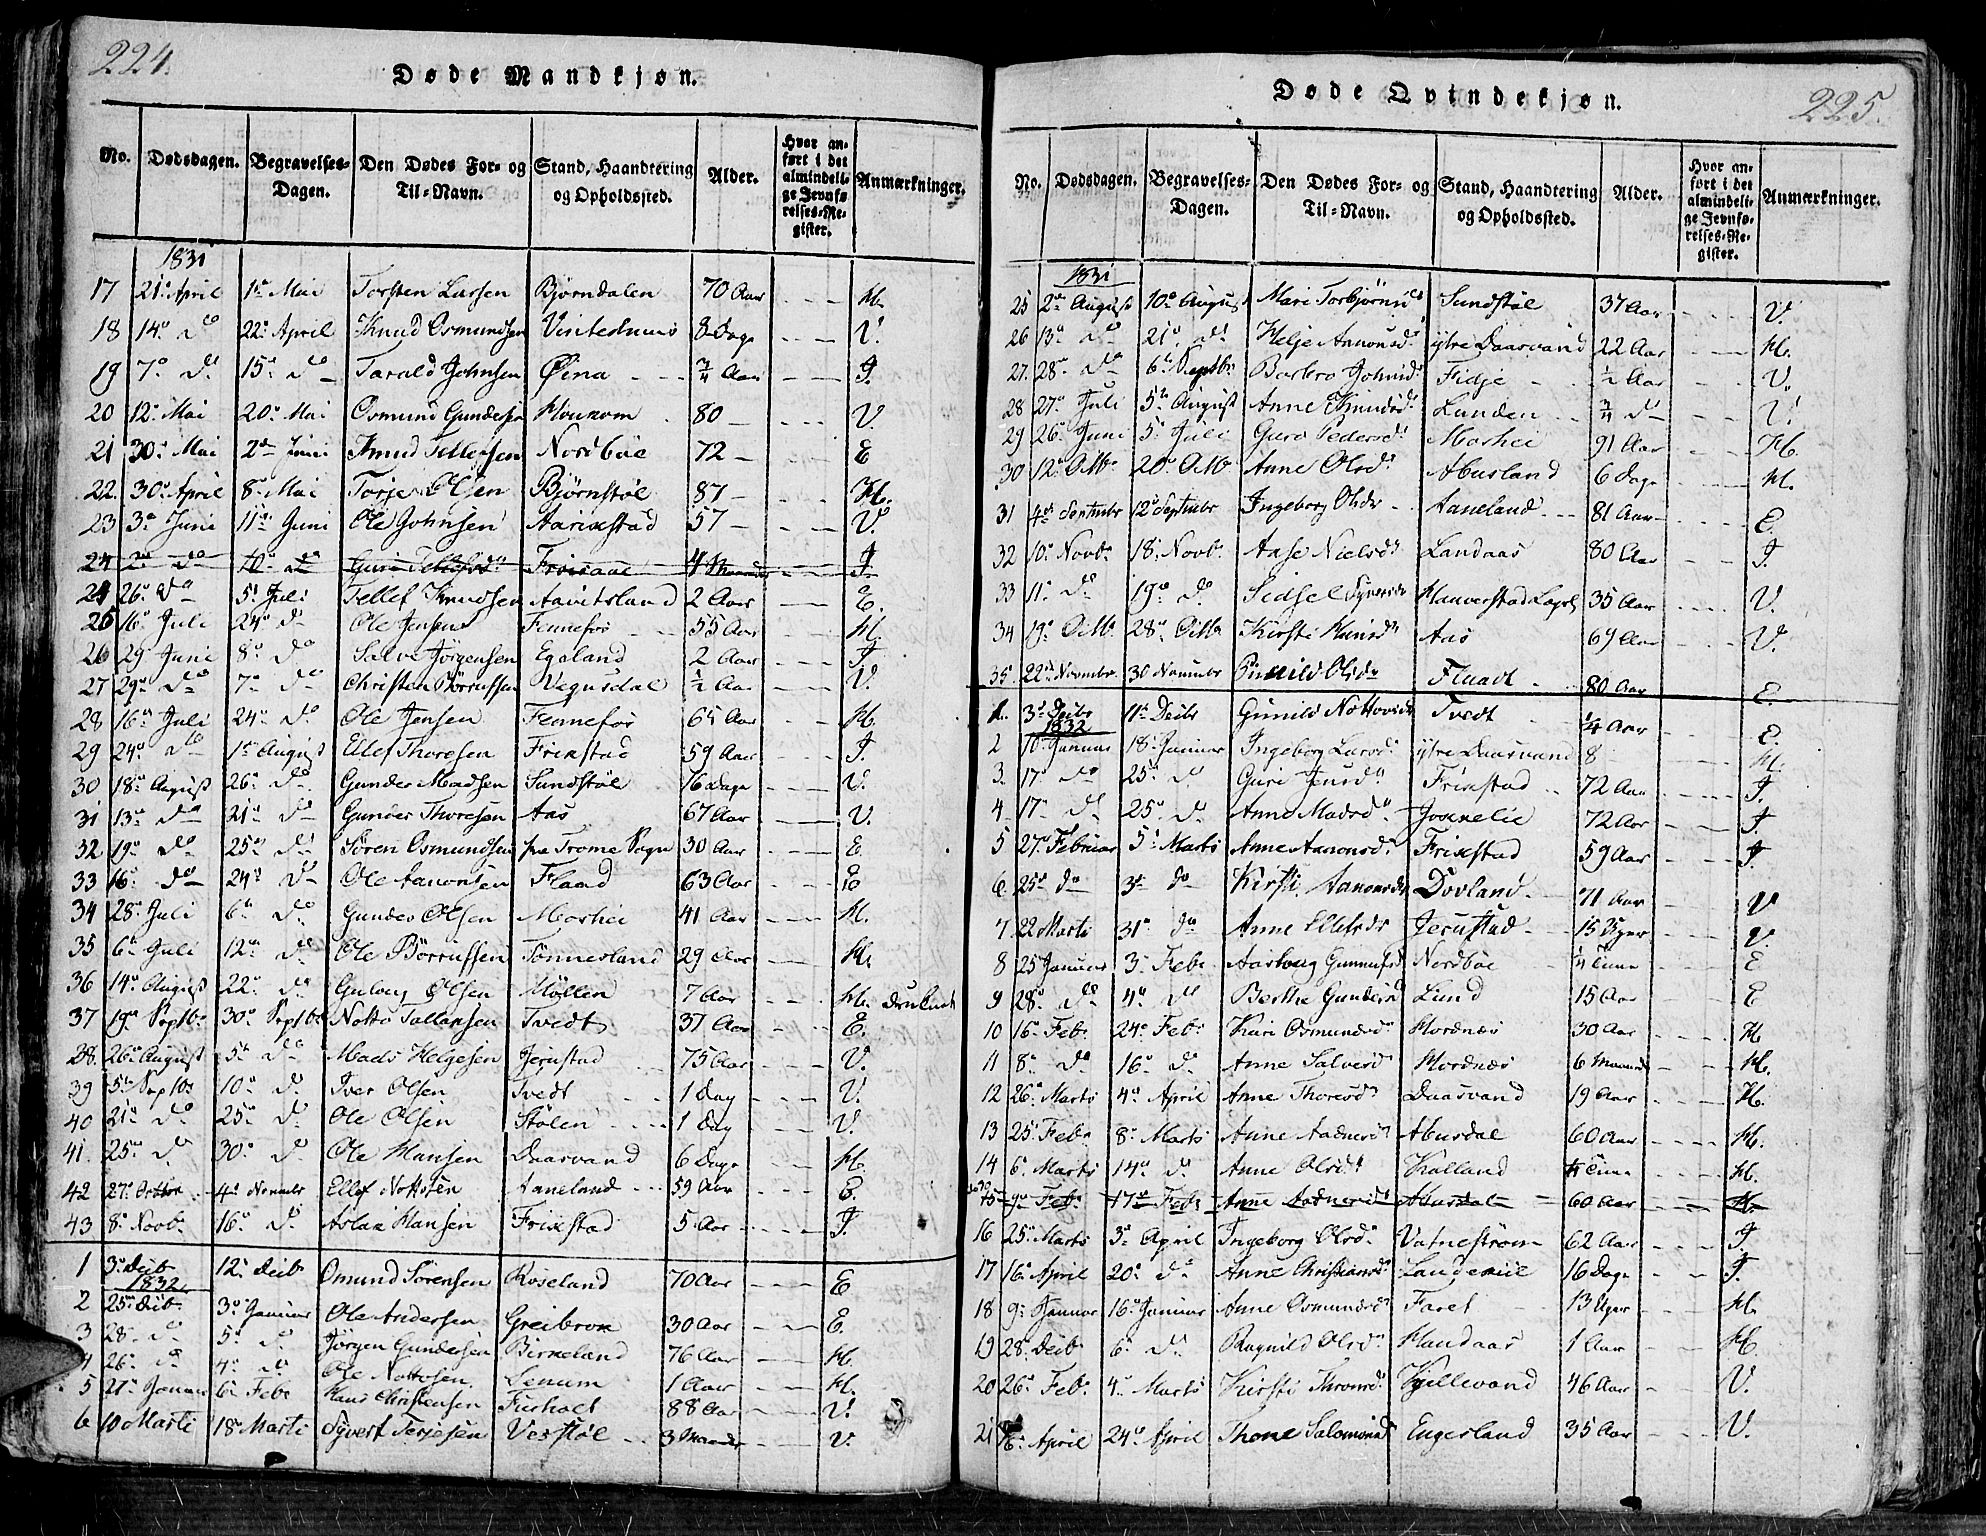 224.
Døde Mandkjøn.
No. Dødsdagen. Begravelses-Dagen. Den Dødes For- og Til-Navn. Stand, Haandtering og Opholdssted. Alder. Hvor anført i det almindelige Jevnførelses-Register. Anmærkninger.
1831
17 21. April 1ste Mai Torsten Larsen Bjørndalen 70 Aar H.
18 14. do 22. April Knud Osmundsen 8 Dage V.
19 7. do 15. do Tarald Johnsen Øina 3/4 Aar I.
20 12. Mai 20. Mai Osmund Gundersen 80 — V.
21 30. Mai 2den Juni Knud Tellefsen Nordbøe 72 — E
22. 30. April 8. Mai Torje Olsen Bjørnstøl 87 — H.
23 3. Juni 11. Juni Ole Johnsen Aarikstad 57 — V.
24 2. do 10. do Guri Tellefsd. Froisaae 4 Maaneder I.
24 26. do 5. Juli Tellef Knudsen Aavitsland 2 Aar E.
25 16. Juli 24. do Ole Jensen Fennefos 55 Aar H.
26 29 Juni 8. do Salve Jørgensen Egeland 2 Aar I.
27 29. do 7. do Christen Børrufsen Vegusdal 1/2 Aar V.
28 16. Juli 24. do Ole Jensen Fennefos 65 Aar H.
29 24. do 1ste August Ellef Thoresen Frikstad 59 Aar I.
30 18. August 26. do Gunder Madsen Sundstøl 76 Dage V.
31 13. do 21. do Gunder Thoresen Aas 67 Aar V.
32 19. do 25. do Søren Osmundsen fra Tromø Sogn 30 Aar E.
33 16. do 24. do Ole Aanonsen Flaad 63 Aar E
34 28. Juli 6. do Gunder Olsen Morhei 41 Aar H.
35 6. Juli 12. do Ole Børrufsen Tønnesland 29 Aar H.
36 14. August 22. do Gulov Olsen Møllen 7 Aar H. druknet
37 19. Septbr 30. Septbr Notto Tallaksen Tvedt 37 Aar E.
38. 26. August 5. do Mads Helgesen Jerustad 75 Aar V.
39 5. Septbr 10. do Iver Olsen Tvedt 1 Dag V.
40 21. do 25. do Ole Olsen Stølen 1 Dag V.
41. 25. do 30. do Ole Hansen Daasvand 6 Dage H.
42 27. Octbr 4. Novembr Ellef Nottosen Aaneland 59 Aar E.
43 8. Novb. 16. do Aslak Hansen Frikstad 5 Aar I.
1 3. Decb 12. Decb Omund Sörensen Roseland 70 Aar E
1832
2 25. Decb. 3. Januar Ole Andersen Greibrok 30 Aar E.
3 28. do 5. do Jørgen Gundersen Birkeland 76 Aar H.
4 26. do 4. do Ole Nottosen Senum 1 Aar H.
5 27. Januar 6. Feb. Hans Christensen Furholt 88 Aar V.
6 10 Marti 18. Marti Syvert Terjesen Verstøl 3 Maaneder V.
225.
Døde Qvindekjøn.
No. Dødsdagen. Begravelses-Dagen. Den Dødes For- og Til-Navn. Stand, Haandtering og Opholdssted. Alder. Hvor anført i det almindelige Jevnførelses-Register. Anmærkninger.
1831
25 2. August 10. August Mari Torbjørnsd. Sundstøl 37 Aar V.
26 13. do 21. do Helje Aanonsd. ytre Daasvand 22 Aar H.
27. 28. do 6. Septbr Barbro Johnsd. Fidje 1/2 Aar V.
28 27. Juli 5. August Anne Knudsd. Lunden 3/4 do V.
29 26. Juni 5. Juli Guro Pedersd. Morhei 91 Aar H.
30 12. Octb. 20. Octb. Anne Olsd. Abusland 6 Dage H.
31 4. Septembr 12. Septembr Ingeborg Olsdr Aaneland 81 Aar E.
32 10. Novb. 18. Novb. Aase Nielsd. Landaas 80 Aar I.
33 11. do 19. do Sidsel Syversdr 35 Aar V.
34 19. Octb. 28. Octb. Kirsti Hansd. Aas 69 Aar V.
35. 22. Novembr 30 Novembr Gunild Olsdr Flaadt 80 Aar E.
1. 3. Decbr 11. Decbr Gunild Nottosdr Tvedt 1/4 Aar E.
1832
2 10. Januar 18. Januar Ingeborg Larsd. ytre Daasvand 8 — H.
3. 17. do 25. do Guri Jensd. Frikstad 72 Aar I.
4. 17. do 25. do Anne Madsd. Jokkelie 72 Aar I.
5 27. Februar 5. Marts Anne Aanonsd. Frikstad 59 Aar I.
6. 25. do 3. do Kirsti Aanonsdr Dovland 71 Aar V
7 22 Marti 31. do Anne Ellefsdr Jerustad 15 Uger V.
8 25 Januar 3. Feb. Aaslaug Gunnufsd. Nordbøe 1/4 Time E
9 28. do 4. do Berthe Gundersd. Lund 15 Aar E
10 16. Feb. 24. Feb. Kari Osmundsd. Hordnæs 30 Aar H
11 8. do 16. do Anne Salvesd. Hordnæs 6 Maaneder H.
12 26. Marts 4. April Anne Thoresd. Daasvand 19 Aar H.
13 25. Feb. 8. Marts Anne Aadnesd. Abusdal 60 Aar H.
14 6. Marts 14. do Anne Olsd. Kalland 1/4 Time H.
15 9. Feb. 17. Feb. Anne Aadnesd. Abusdal 60 Aar H.
16 25. Marts 3. April Ingeborg Olsd. Vatnestrøm 62 Aar I
17 16. April 20. do Anne Christiansd. Landeviie 16 Dage I.
18 9. Januar 16. Januar Anne Osmundsd. Faret 13 Uger H.
19 28. Decb. 6. do Ragnild Olsd. Haadaas 1 Aar H.
20 26. Feb. 4. Marts Kirsti Thronsd. Kjillevand 46 Aar V.
21 16. April 24. April Thone Salomonsd. Engesland 35 Aar V.